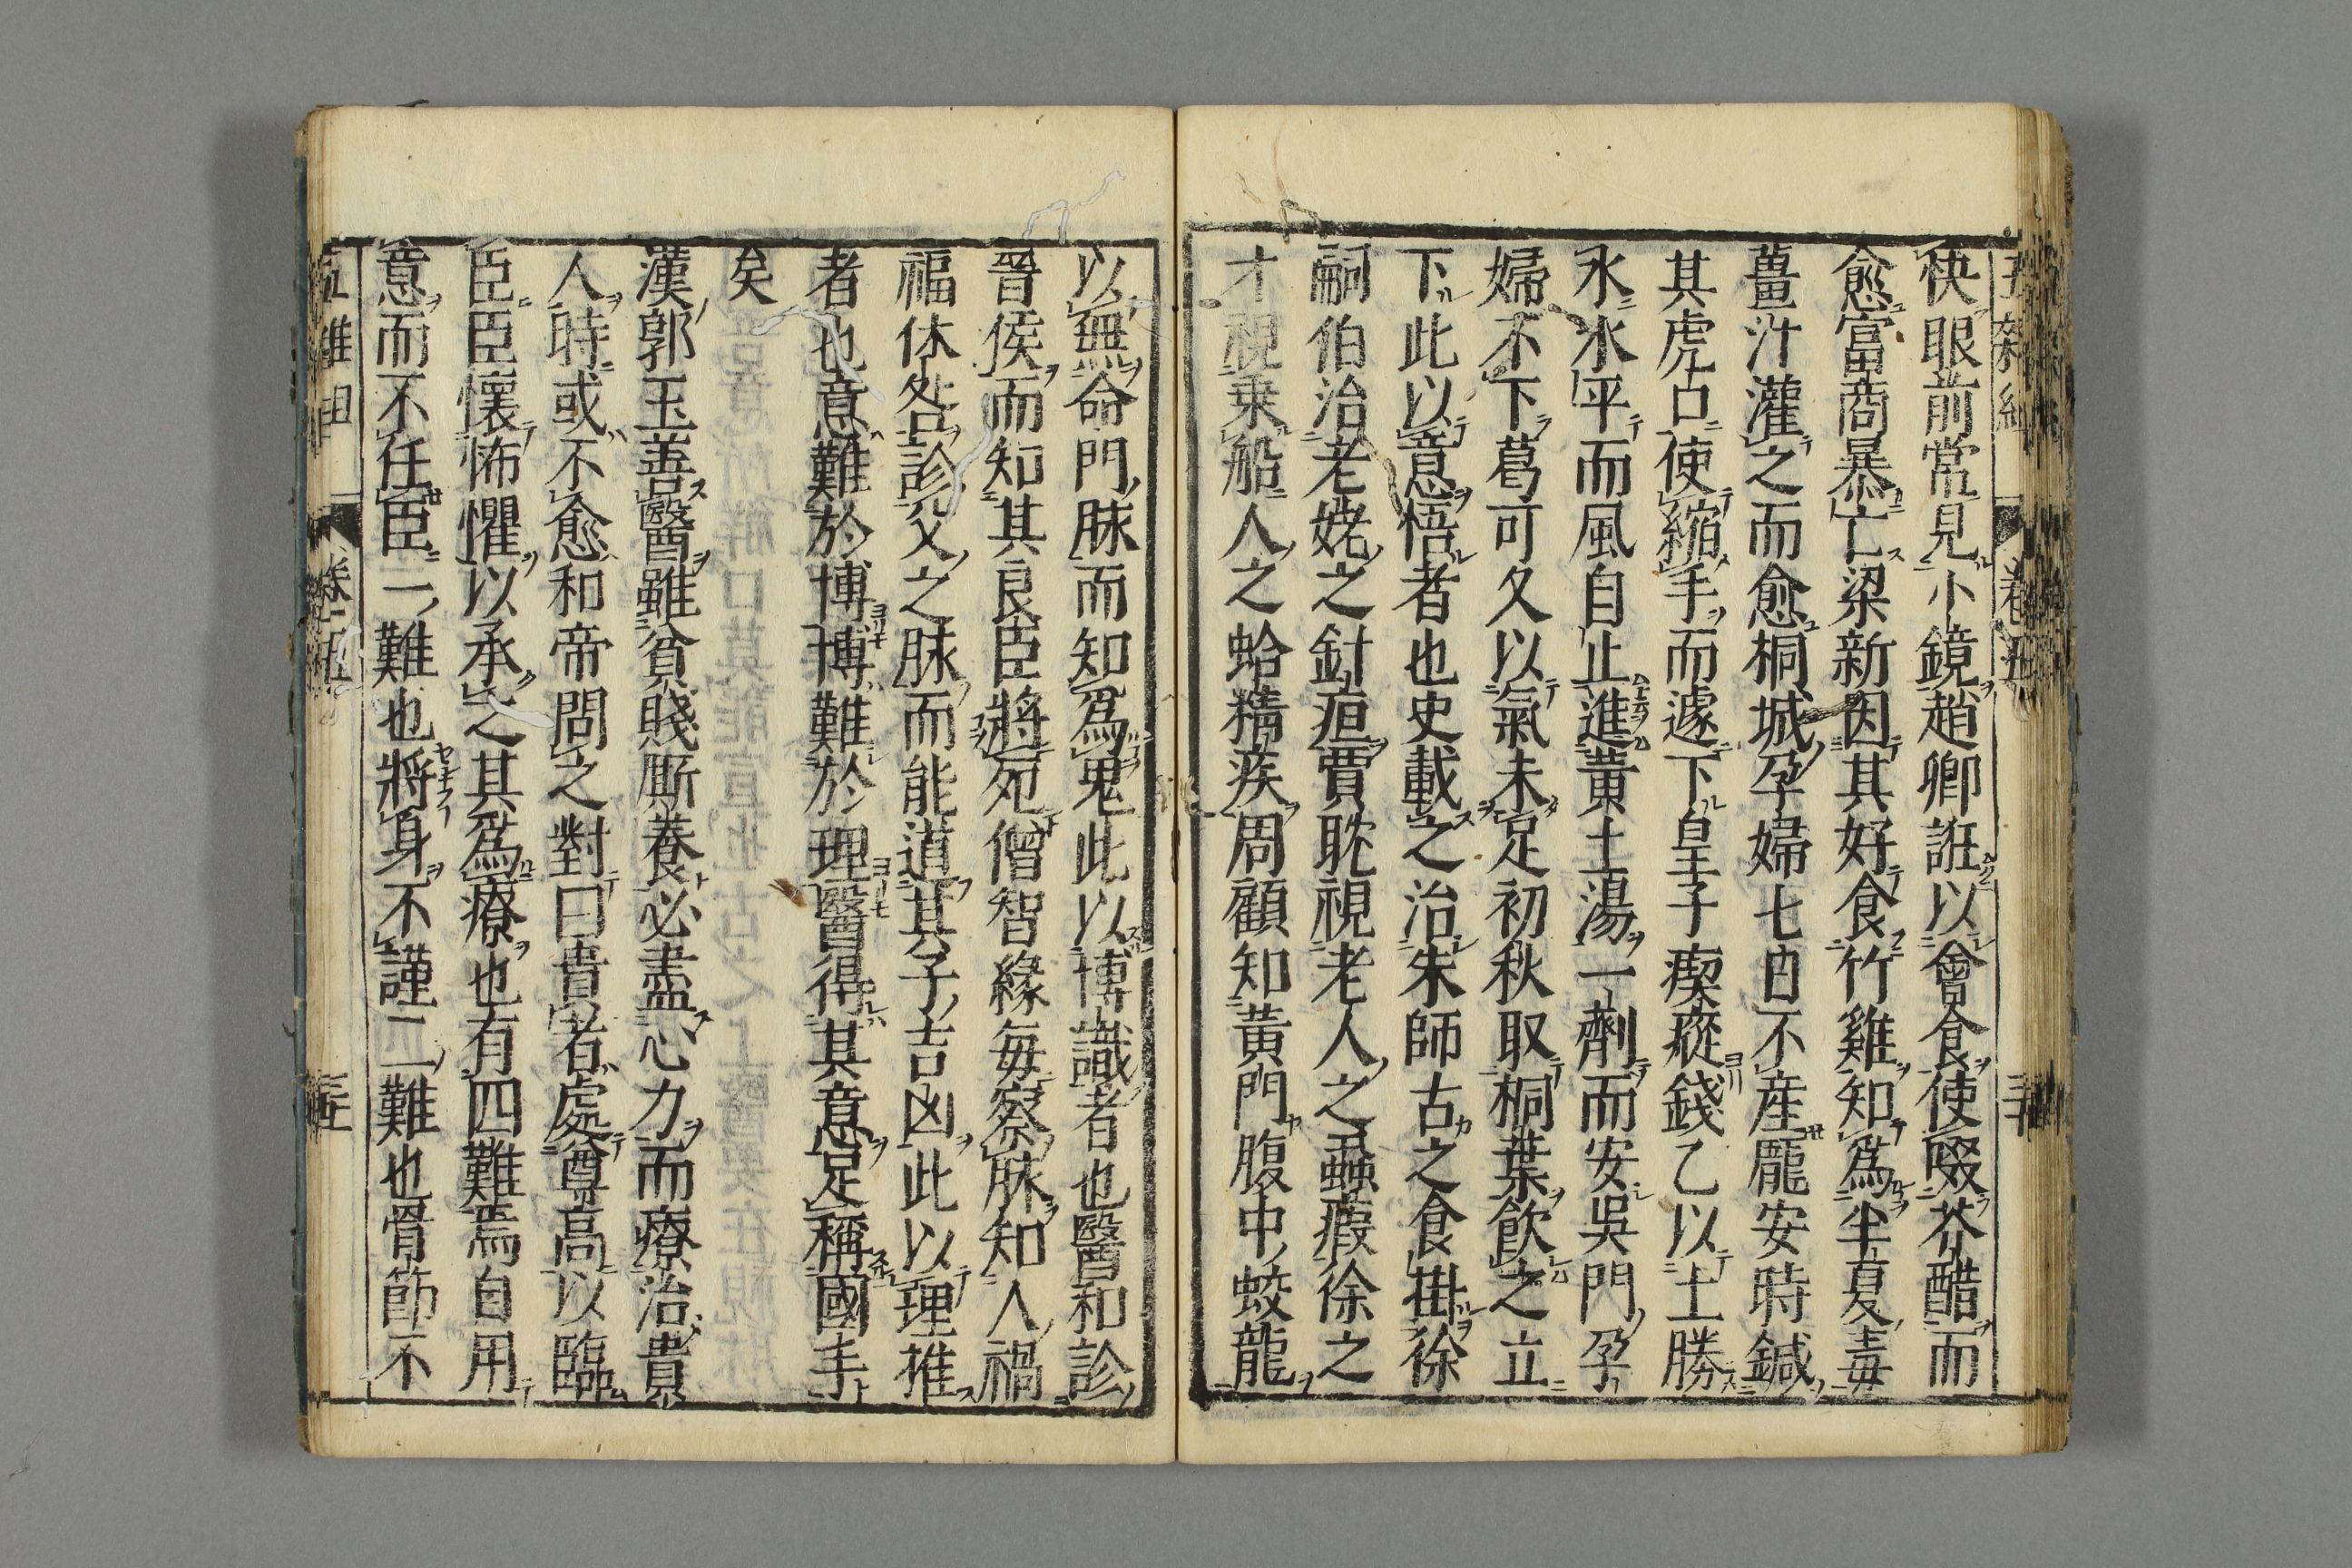 快眼前常見小鏡趙卿誑以會食使啜芥醋而
愈富商暴亡梁新因其好食竹雞知爲半夏毒
薑汁灌之而愈桐城孕婦七日不産龐安時鍼
其虎口使縮手而遽下皇子瘈瘲錢乙以土勝
水水平而風自止進黃土湯一劑而安吳門孕
婦不下葛可久以氣未足初秋取桐葉飲之立
下此以意悟者也史載之治朱師古之食掛徐
嗣伯治老姥之針疽賈耽視老人之蝨瘕徐之
才視乗船人之蛤精疾周顧知黃門腹中蛟龍
以無命門脉而知爲鬼此以博識者也醫和診
晉侯而知其良臣將死僧智緣每察脉知人禍
福休咎診父之脉而能道其子吉凶此以理推
者也意難於博博難於理醫得其意足稱國手
矣
漢郭玉善醫雖貧賤厮養必盡心力而療治貴
人時或不愈和帝問之對曰貴者處尊高以臨
臣臣懷怖懼以承之其爲療也有四難焉自用
意而不任臣一難也將身不謹二難也骨節不